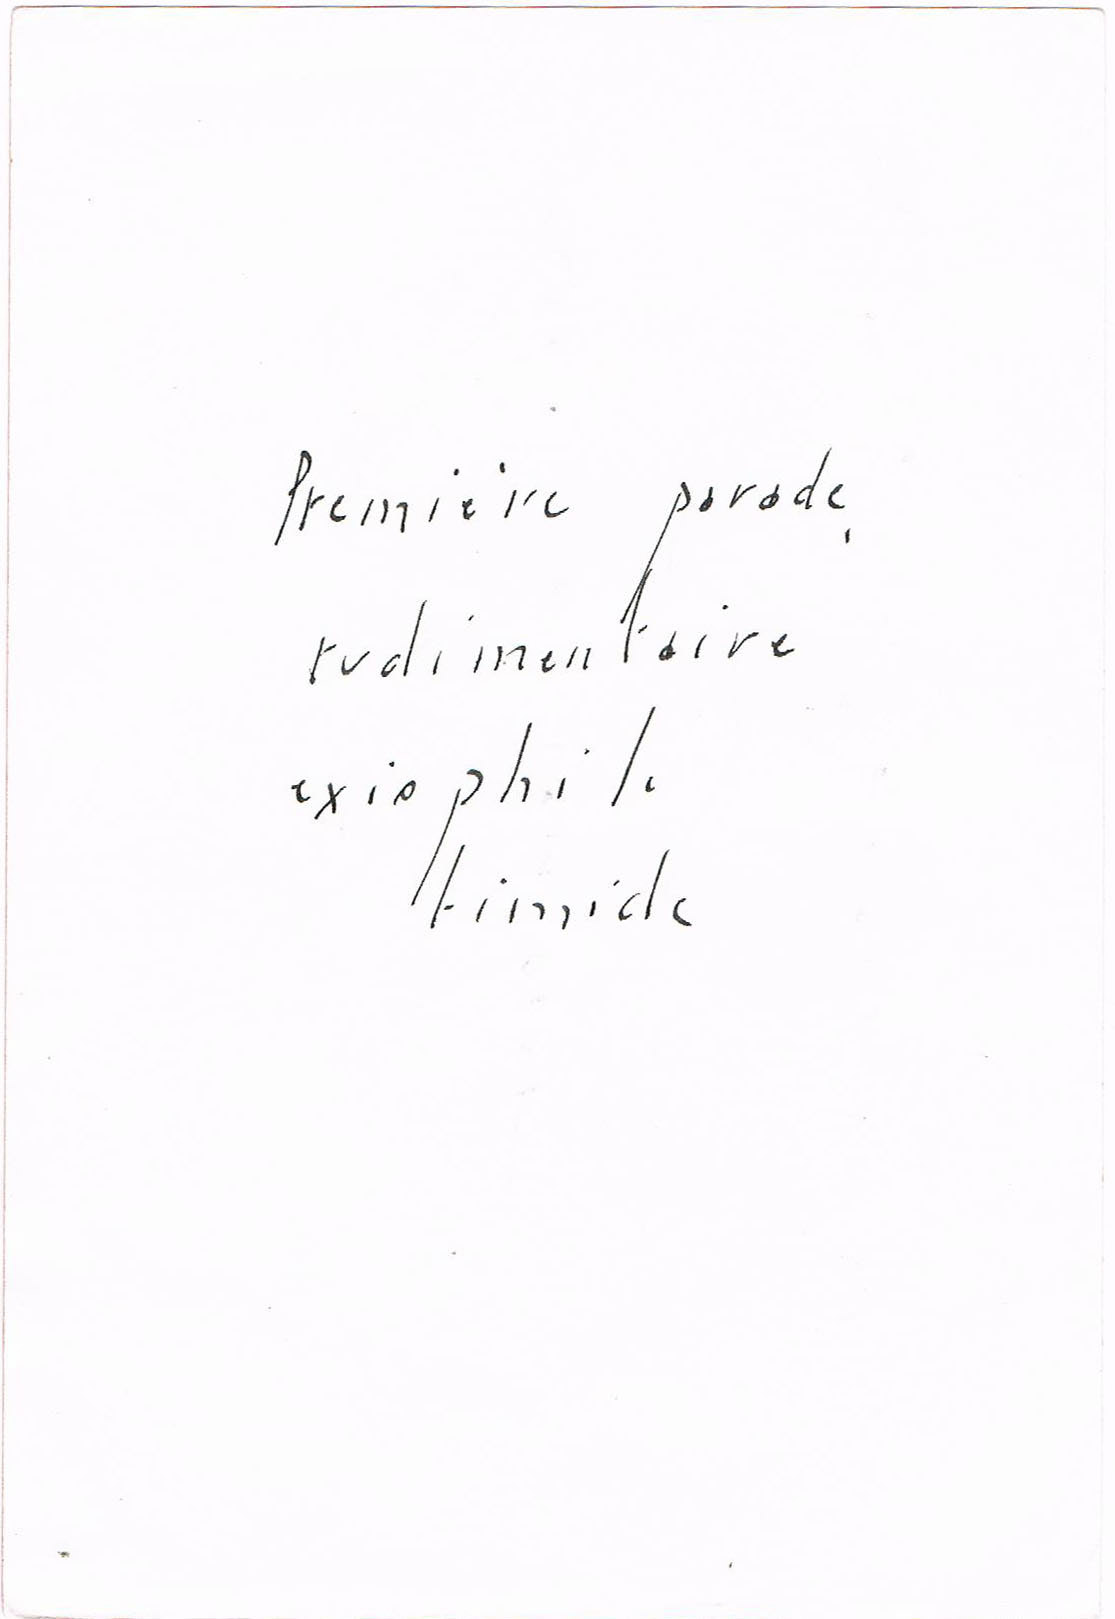 Première parade,
rudimentaire
exisphile
timide